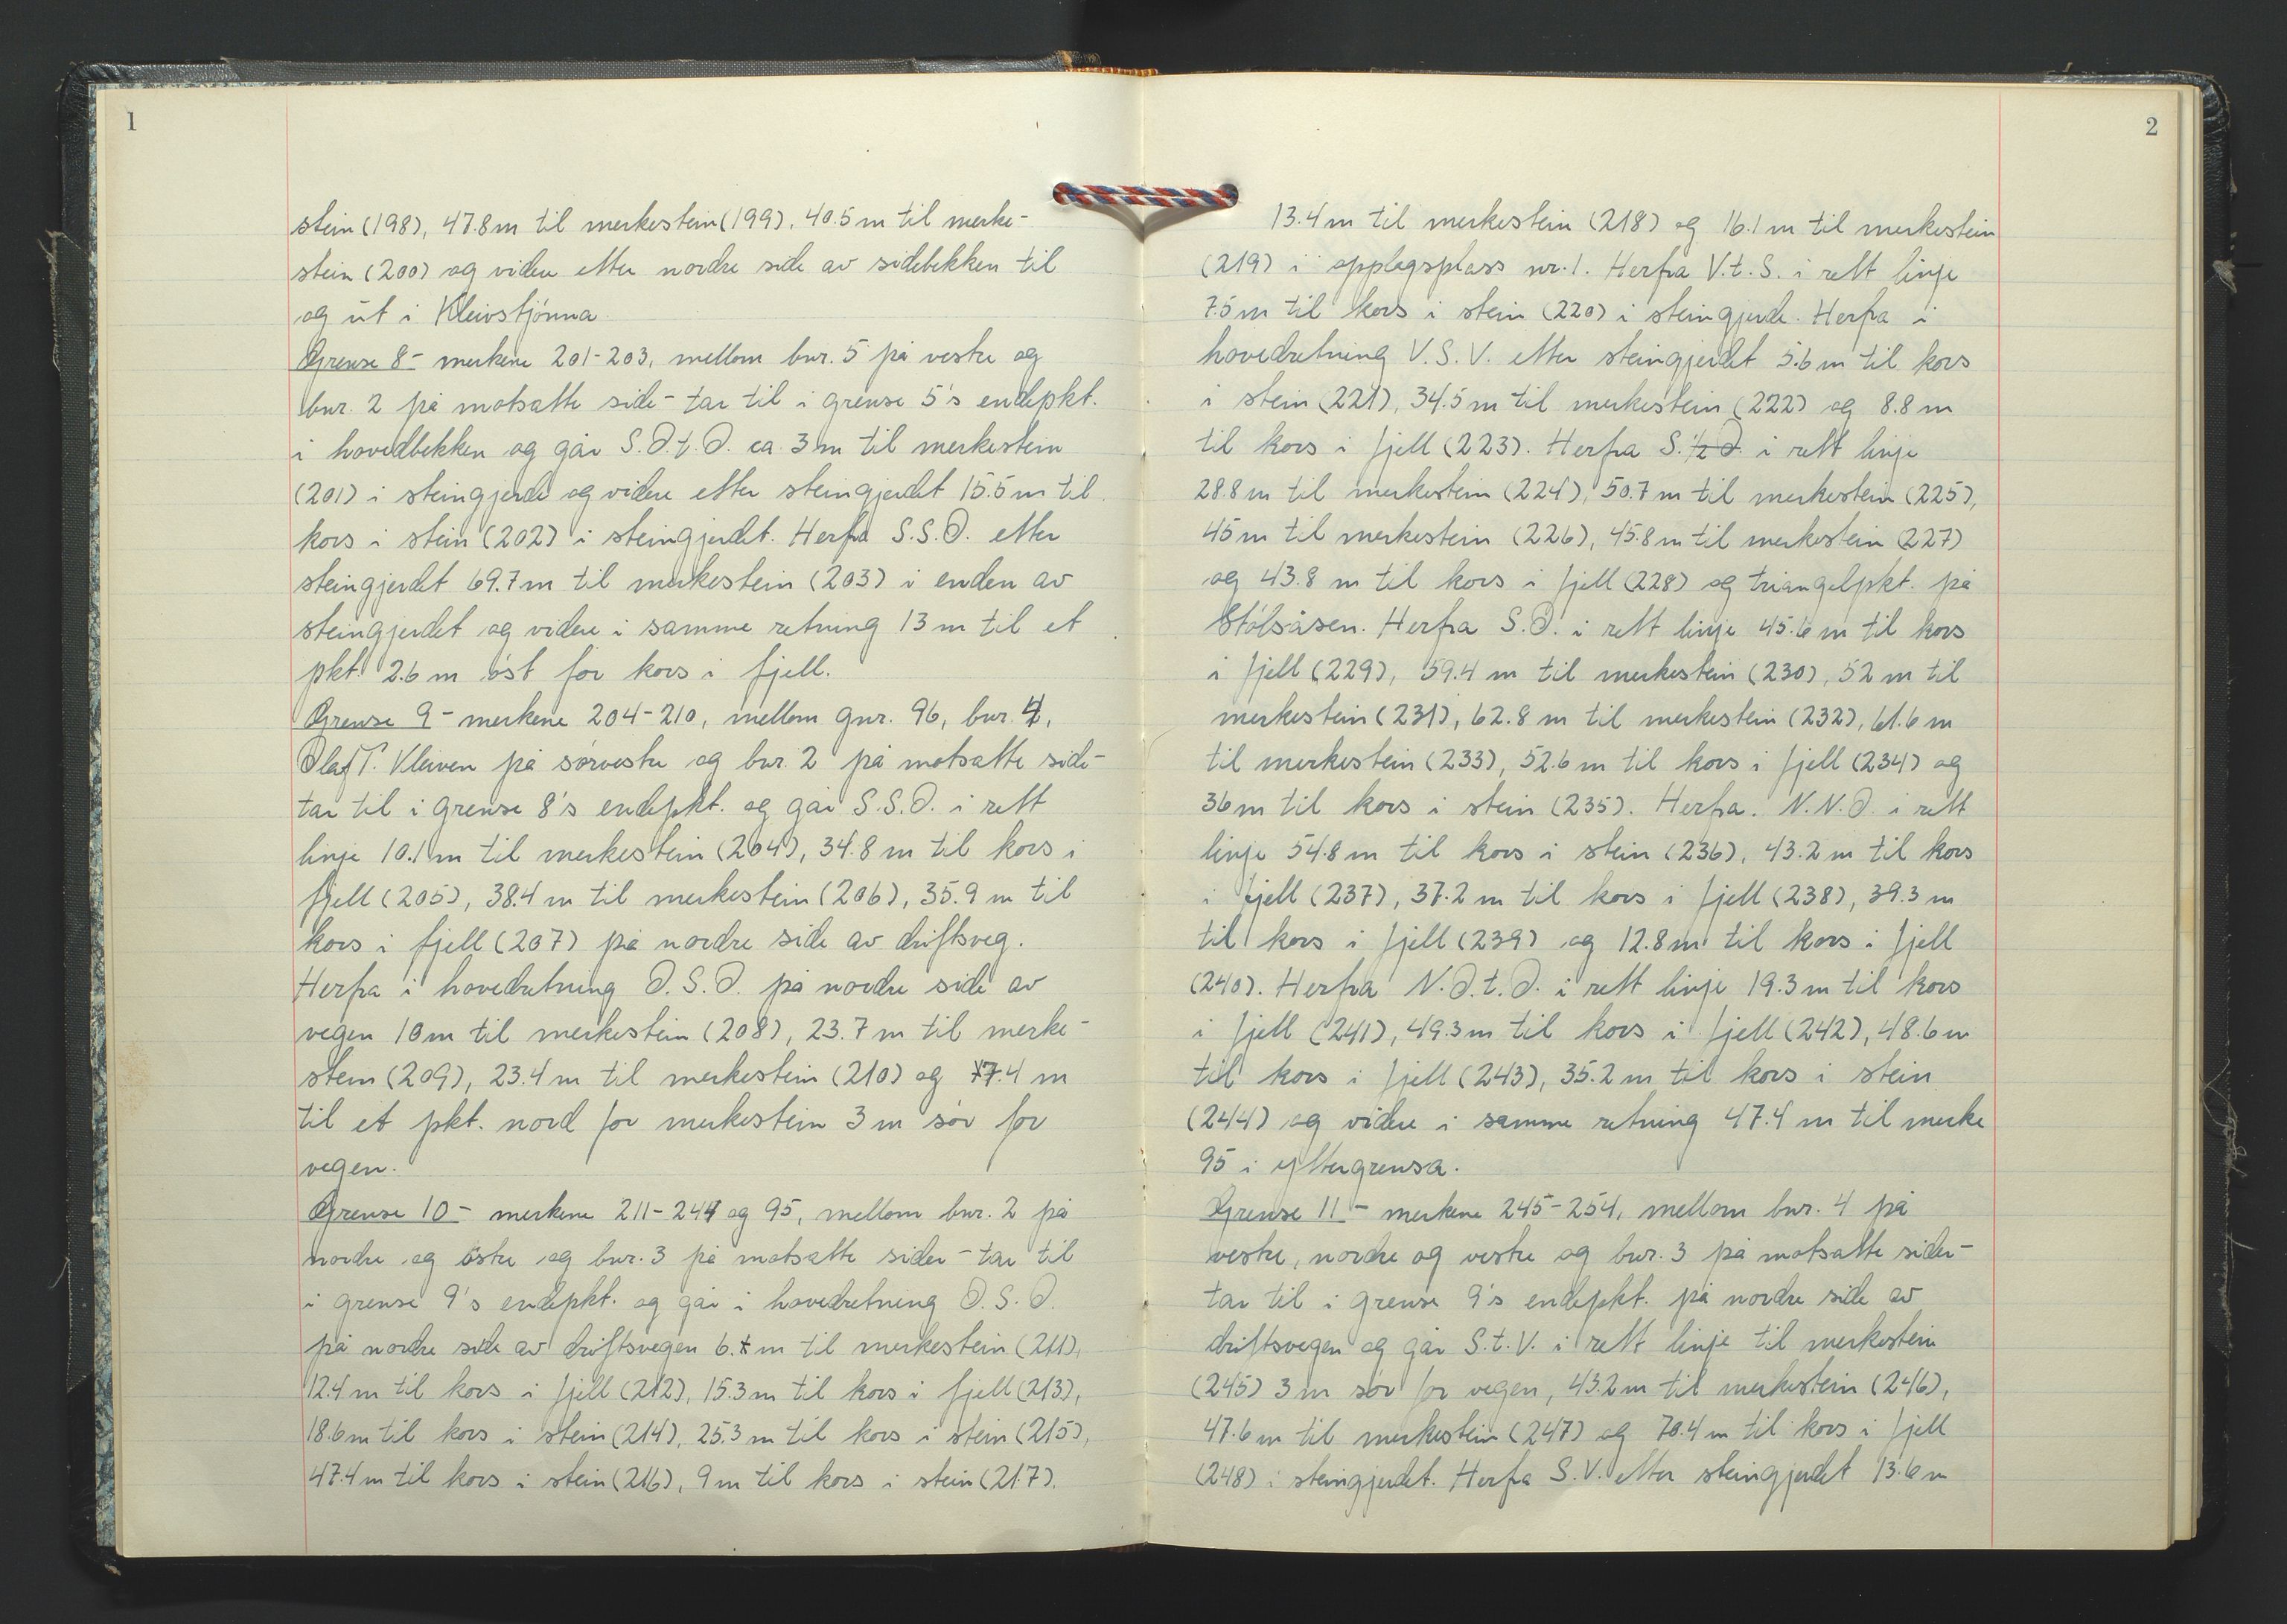 1
stein (198), 47.8 m til merkestein (199), 40.5 m til merke-
stein (200) og videre etter nordre side av sidebekken til
og ut i Kleivstjønna.
Grense 8 - merkene 201-203, mellom bnr. 5 på vestre og
bnr. 2 på motsatte side - tar til i grense 5's endepkt.
i hovedbekken og går S.Ø.t.Ø. ca. 3 m til merkestein
(201) i steingjerde og videre etter steingjerdet 15.5 m til
kors i stein (202) i steingjerdet. Herfra S.S.Ø. etter
steingjerdet 69.7 m til merkestein (203) i enden av
steingjerdet og videre i samme retning 13 m til et
pkt. 2.6 m øst for kors i fjell.
Grense 9 - merkene 204-210, mellom gnr. 96, bnr. 4,
Olaf T. Kleiven på sørvestre og bnr. 2 på motsatte side -
tar til i grense 8's endepkt. og går S.S.Ø. i rett
linje 10.1 m til merkestein (204), 34.8 m til kors i
fjell (205), 38.4 m til merkestein (206), 35.9 m til
kors i fjell (207) på nordre side av driftsveg.
Herfra i hovedretning Ø.S.Ø. på nordre side av
vegen 10 m til merkestein (208), 23.7 m til merke-
stein (209), 23.4 m til merkestein (210) og 17.4 m
til et pkt. nord for merkestein 3 m sør for
vegen.
Grense 10 - merkene 211-244 og 95, mellom bnr. 2 på
nordre og østre og bnr. 3 på motsatte sider - tar til
i grense 9's endepkt. og går i hovedretning Ø.S.Ø.
på nordre side av driftsvegen m til merkestein (211),
12.4 m til kors i fjell (212), 15.3 m til kors i fjell (213),
18.6 m til kors i stein (214), 25.3 m til kors i stein (215),
47.4 m til kors i stein (216), 9 m til kors i stein (217).
2
13.4 m til merkestein (218) og 16.1 m til merkestein
(219) i opplagsplass nr. 1. Herfra V.t.S. i rett linje
7.5 m til kors i stein (220) i steingjerde. Herfra i
hovedretning V.S.V. etter steingjerdet 5.6 m til kors
i stein (221), 34.5 m til merkestein (222) og 8.8 m
til kors i fjell (223). Herfra S. ½ Ø. i rett linje
28.8 m til merkestein (224), 50.7 m til merkestein (225),
45 m til merkestein (226), 45.8 m til merkestein (227)
og 43.8 m til kors i fjell (228) og triangelpkt. på
Stølsåsen. Herfra S.Ø. i rett linje 45.6 m til kors
i fjell (229), 59.4 m til merkestein (230), 52 m til
merkestein (231), 62.8 m til merkestein (232), 61.6 m
til merkestein (233), 52.6 m til kors i fjell (234) og
36 m til kors i stein (235). Herfra. N.N.Ø. i rett
linje 54.8 m til kors i stein (236), 43.2 m til kors
i fjell (237), 37.2 m til kors i fjell (238), 39.3 m
til kors i fjell (239) og 12.8 m til kors i fjell
(240). Herfra N.Ø.t.Ø. i rett linje 19.3 m til kors
i fjell (241), 49.3 m til kors i fjell (242), 48.6 m
til kors i fjell (243), 35.2 m til kors i stein
(244) og videre i samme retning 47.4 m til merke
95 i yttergrensa.
Grense 11 - merkene 245-254, mellom bnr. 4 på
vestre, nordre og vestre og bnr. 3 på motsatte sider -
tar til i grense 9's endepkt. på nordre side av
driftsvegen og går S.t.V. i rett linje til merkestein
(245) 3 m sør for vegen, 43.2 m til merkestein (246),
47.6 m til merkestein (247) og 70.4 m til kors i fjell
(248) i steingjerdet. Herfra S.V. etter steingjerdet 13.6 m